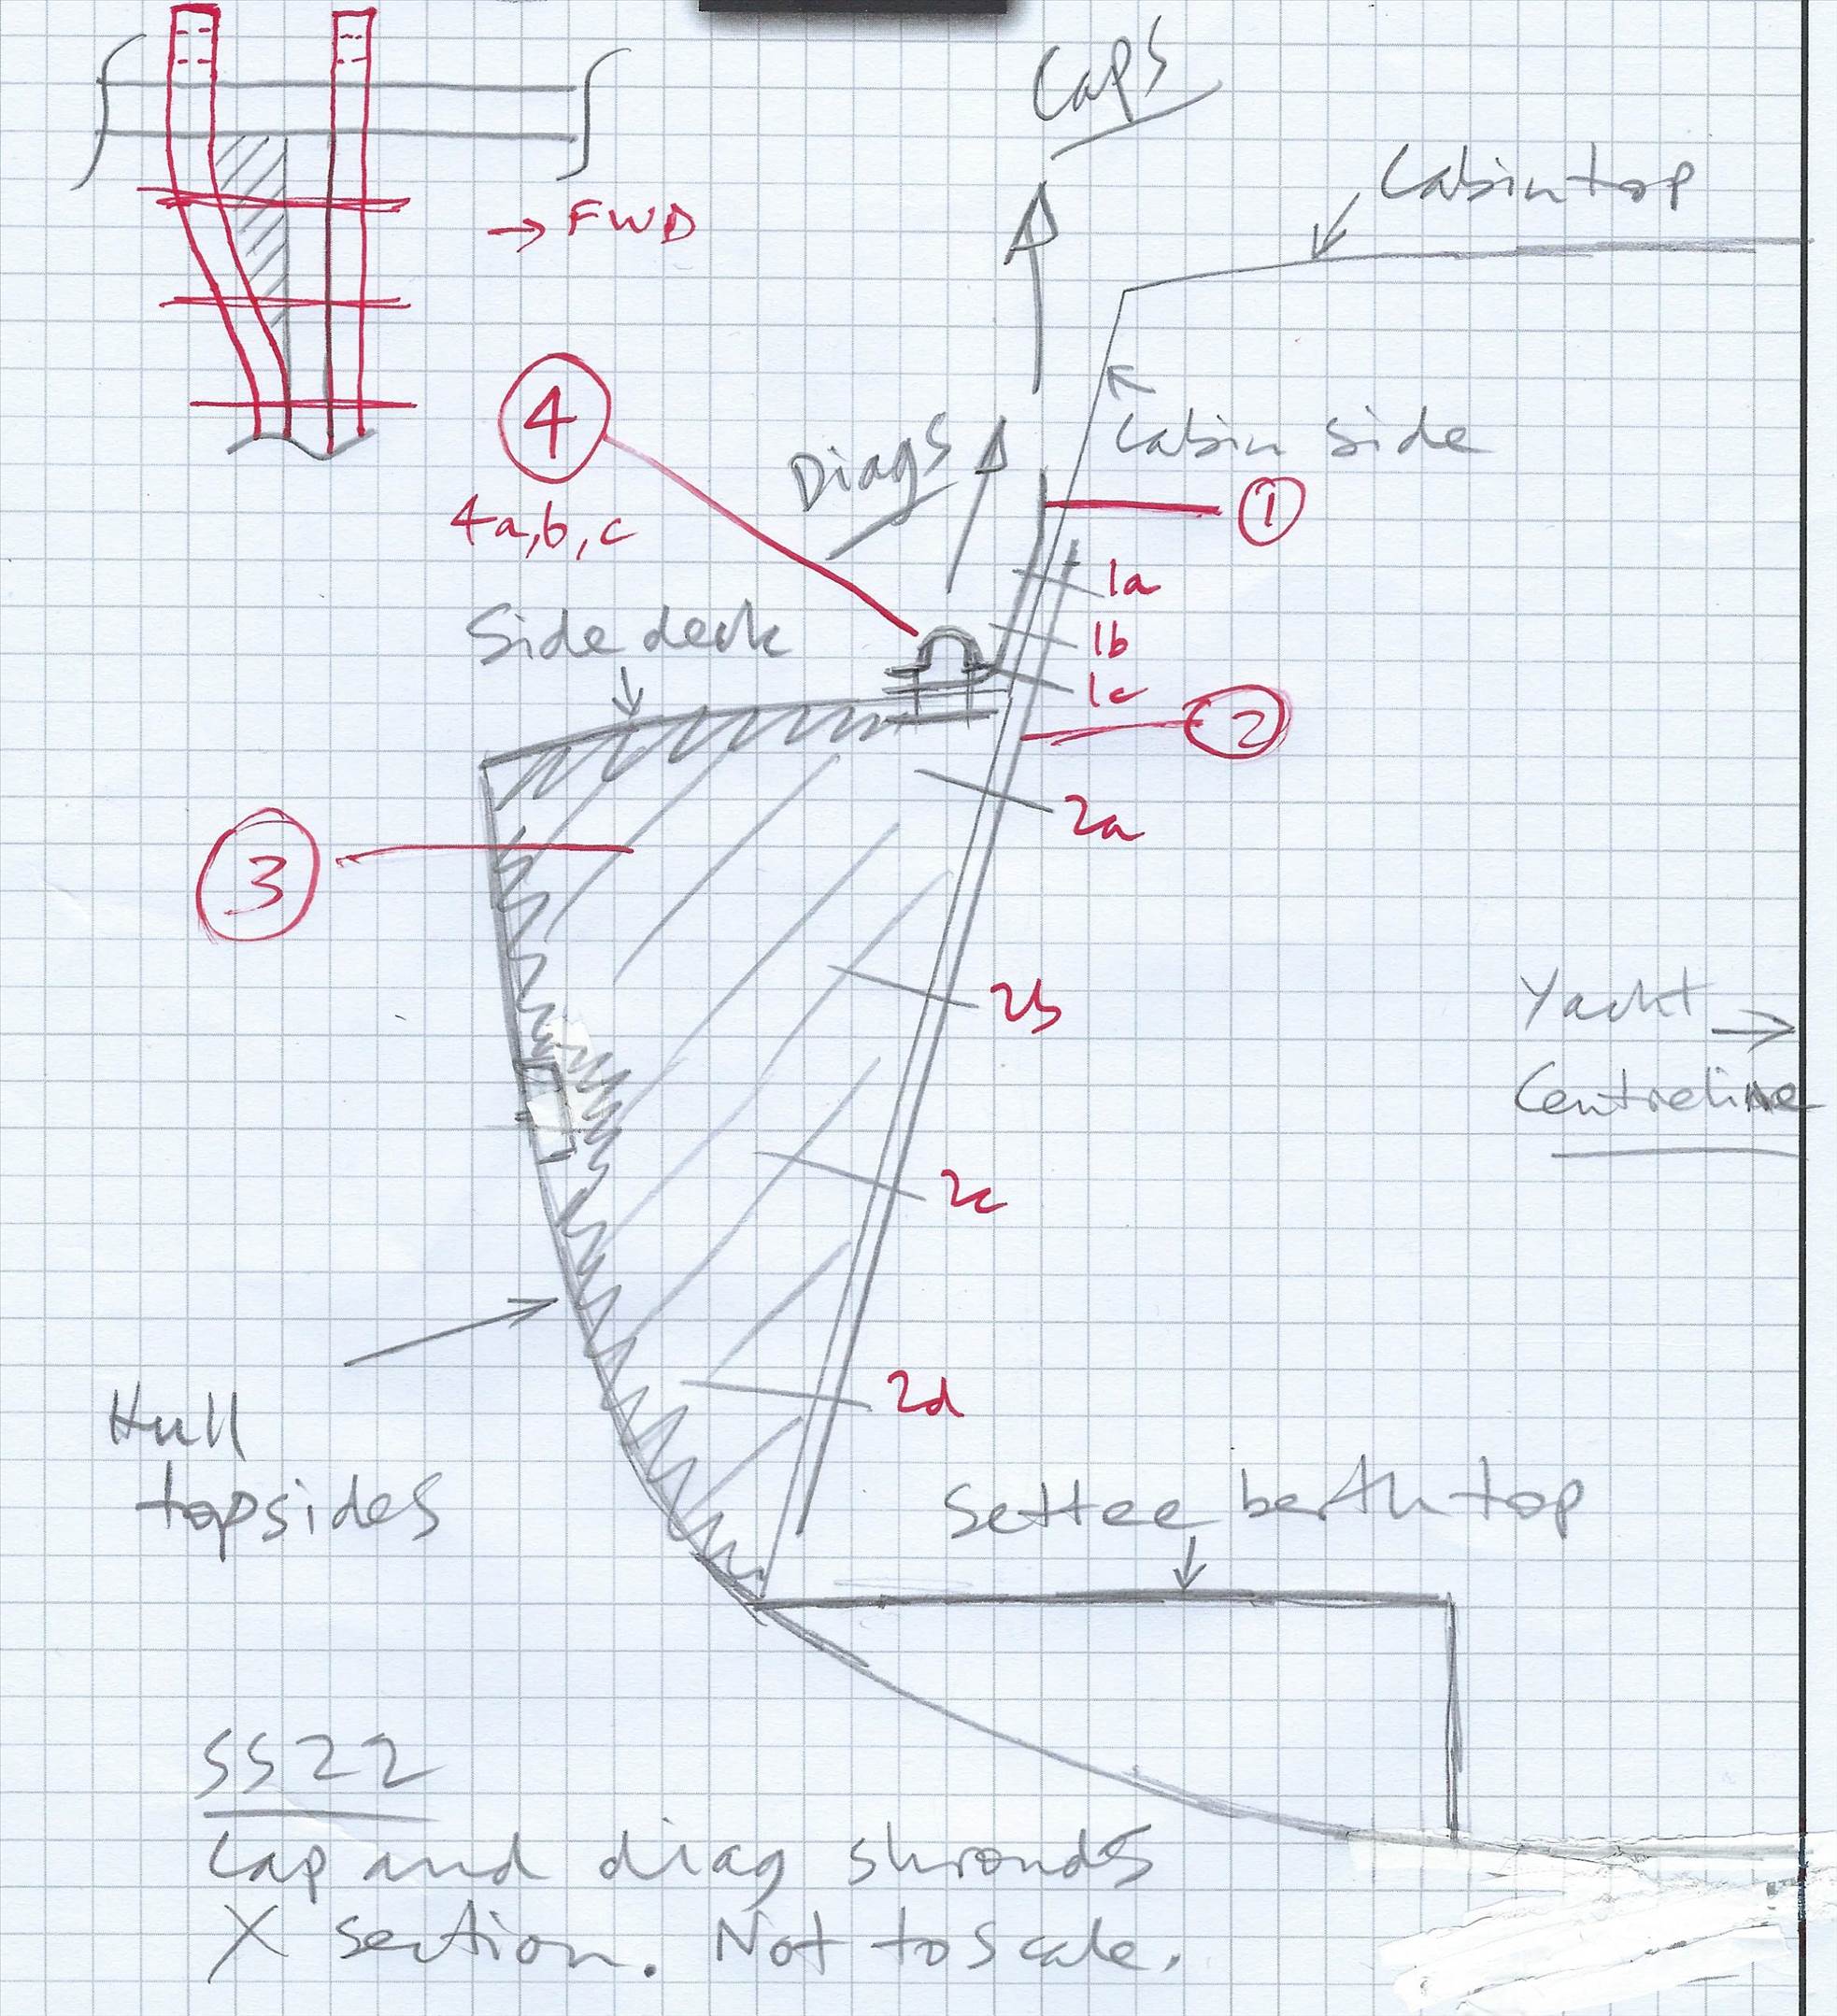 Caps
Cabin top
→ FWD
4
4a, b, c
Diags
Cabin side
1
1a
1b
1c
Side deck
2
2a
3
2b
Yacht →
Centreline
2c
2d
Hull
topsides
Settee berth top
SS22
Cap and diag shrouds
X section. Not to scale.